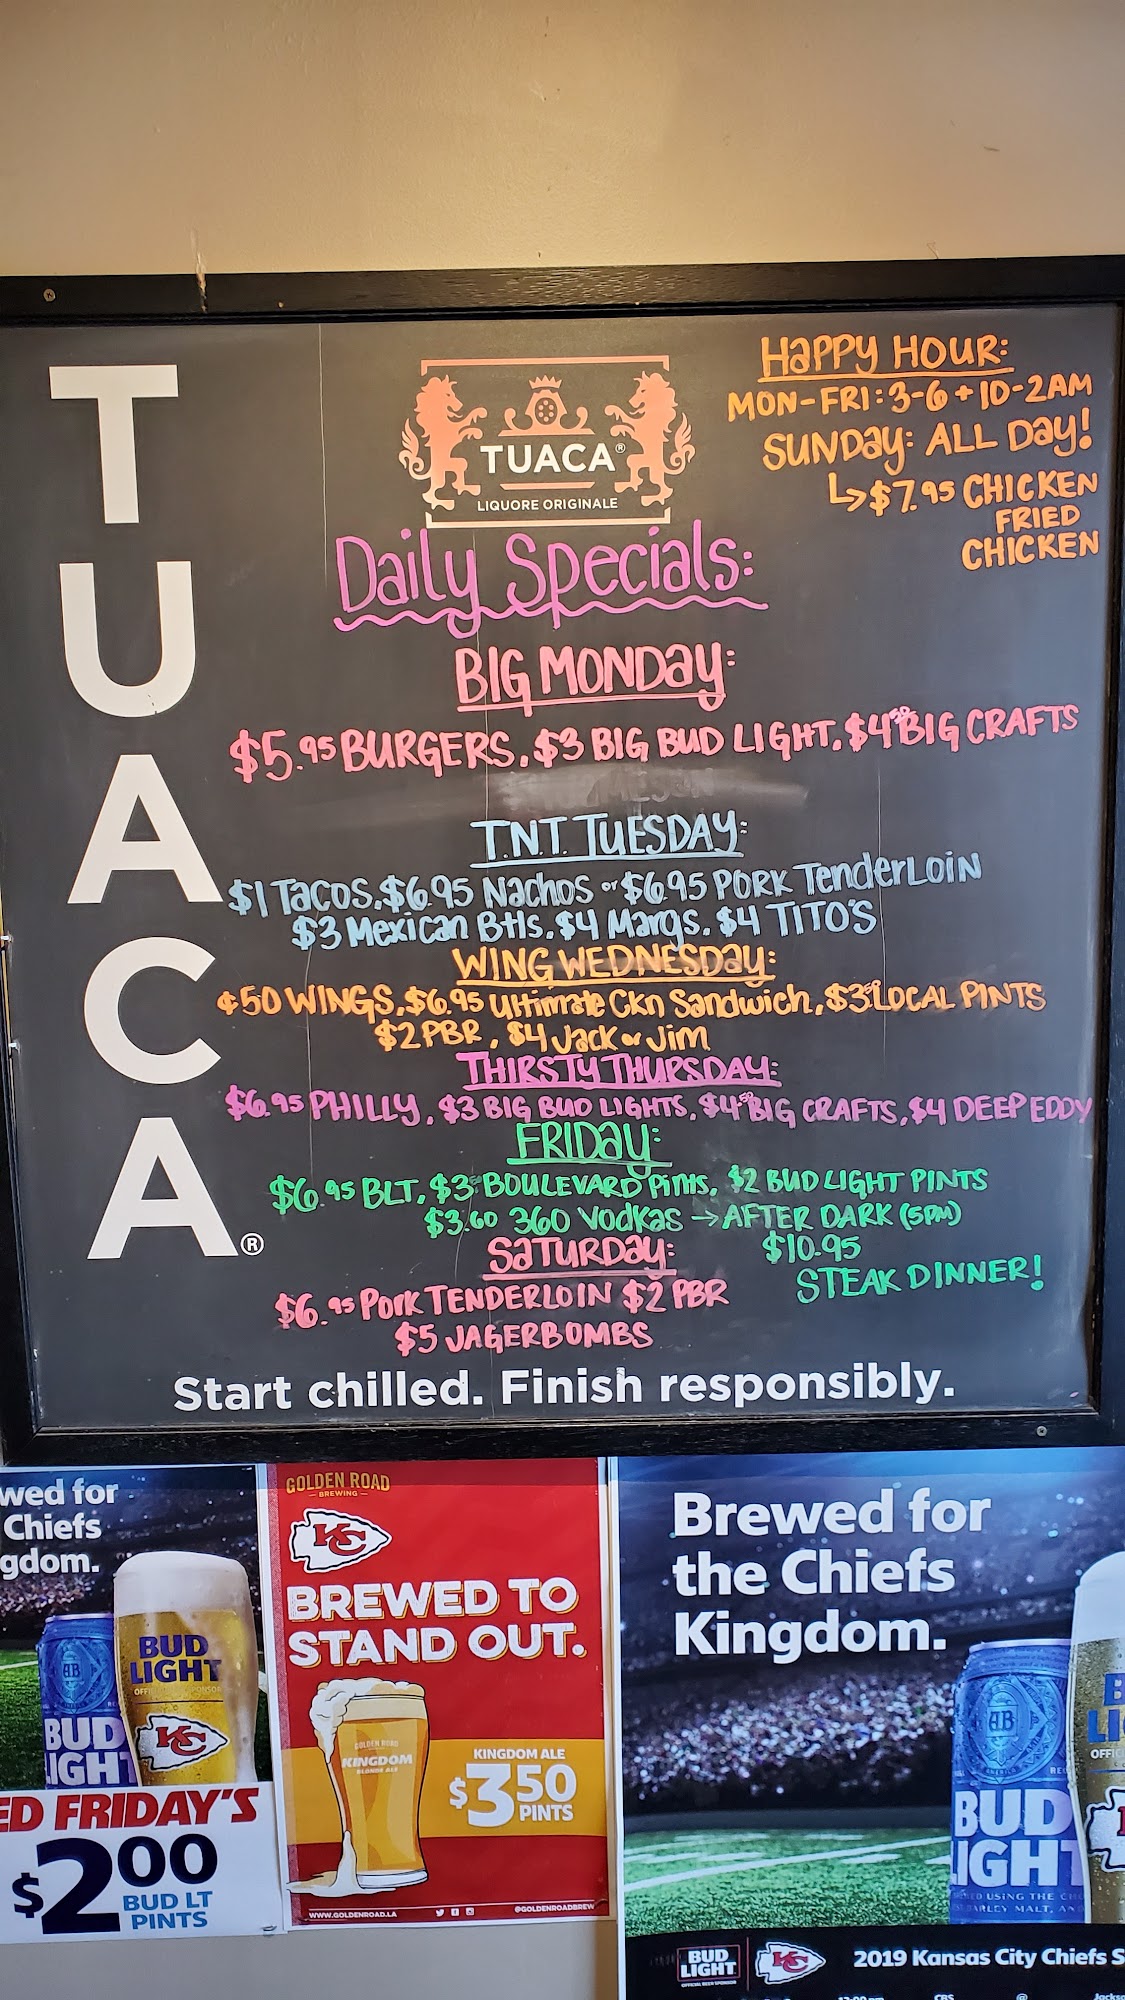 TUACA®
TUACA®
LIQUORE ORIGINALE
HAPPY HOUR:
MON-FRI: 3-6 + 10-2AM
SUNDAY: ALL DAY!
↳$7.95 CHICKEN
FRIED
CHICKEN
Daily Specials:
BIG MONDAY:
$5.95 BURGERS, $3 BIG BUD LIGHT, $4.50 BIG CRAFTS
T.N.T. TUESDAY:
$1 TACOS, $6.95 Nachos or $6.95 PORK TenderLOIN
$3 Mexican Btls, $4 Margs, $4 TITO'S
WING WEDNESDAY:
¢50 WINGS, $6.95 Ultimate Ckn Sandwich, $3.50 LOCAL PINTS
$2 PBR, $4 Jack or Jim
THIRSTY THURSDAY:
$6.95 PHILLY, $3 BIG BUD LIGHTS, $4.50 BIG CRAFTS, $4 DEEP EDDY
FRIDAY:
$6.95 BLT, $3.50 BOULEVARD Pints, $2 BUD LIGHT PINTS
$3.60 360 Vodkas → AFTER DARK (5PM)
$10.95
STEAK DINNER!
SATURDAY:
$6.95 Pork TENDERLOIN $2 PBR
$5 JAGERBOMBS
Start chilled. Finish responsibly.
wed for
Chiefs
gdom.
BUD
LIGHT
KC
AB
BUD
IGHT
ED FRIDAY'S
$2.00
BUD LT
PINTS
GOLDEN ROAD
BREWING
KC
BREWED TO
STAND OUT.
GOLDEN ROAD
KINGDOM
BLONDE ALE
KINGDOM ALE
$3.50
PINTS
WWW.GOLDENROAD.LA
@GOLDENROADBREW
Brewed for
the Chiefs
Kingdom.
AB
BUD
IGHT
B
LI
OFFIC
BUD
LIGHT
KC
2019 Kansas City Chiefs S
12:00 pm CBS @ Jackso